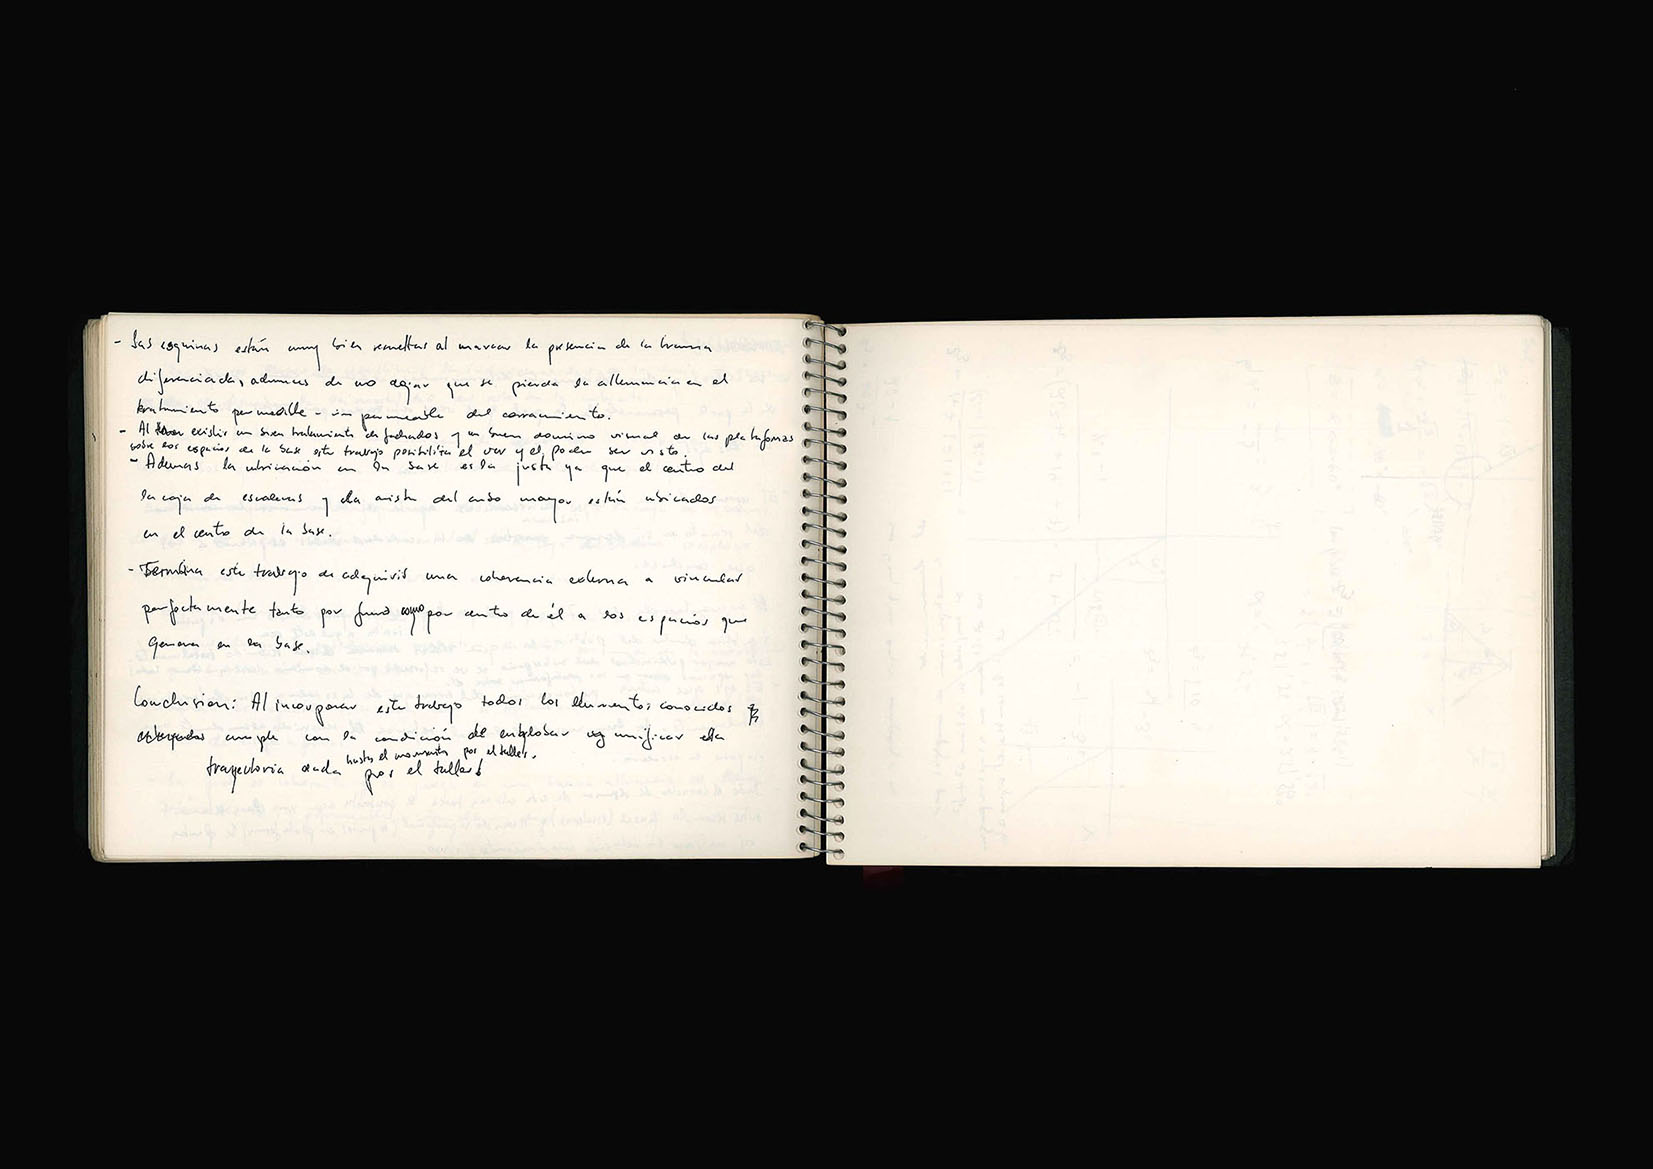 - Las esquinas están muy bien resueltas al marcar la presencia de la trama
diferenciada, ademas de no dejar que se pierda la alternancia en el
tratamiento permeable - impermeable del cerramiento.
- Al existir un buen tratamiento de fachadas y un buen dominio visual de las plataformas
sobre los espacios de la base este trabajo posibilita el ver y el poder ser visto.
- Ademas la ubicación en la base es la justa ya que el centro del
la caja de escaleras y la arista del cubo mayor están ubicados
en el centro de la base.
- Termina este trabajo de adquirir una coherencia externa a vincular
perfectamente tanto por fuera como por dentro de él a los espacios que
genera en la base.
Conclusion: Al incorporar este trabajo todos los elementos conocidos y
cumple con la condición de englobar y unificar la
hasta el momento por el taller.
trayectoria dada por el taller